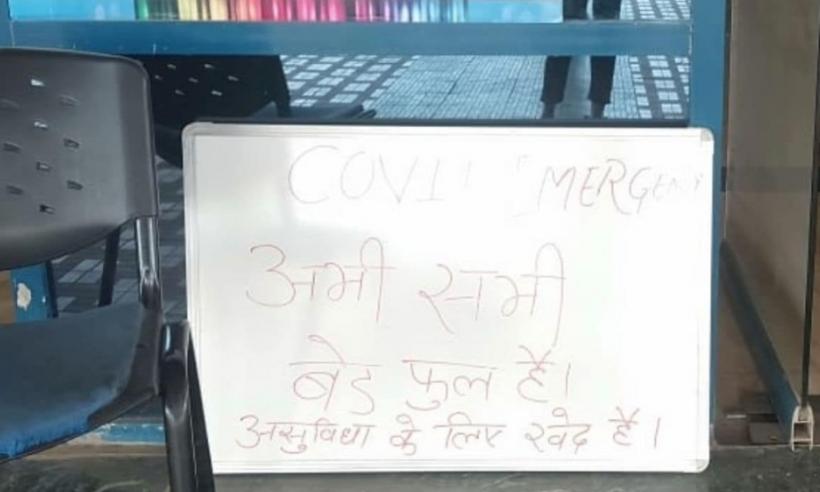 COVI EMERGEN
अभी सभी
बेड फुल हैं।
असुविधा के लिए खेद है।